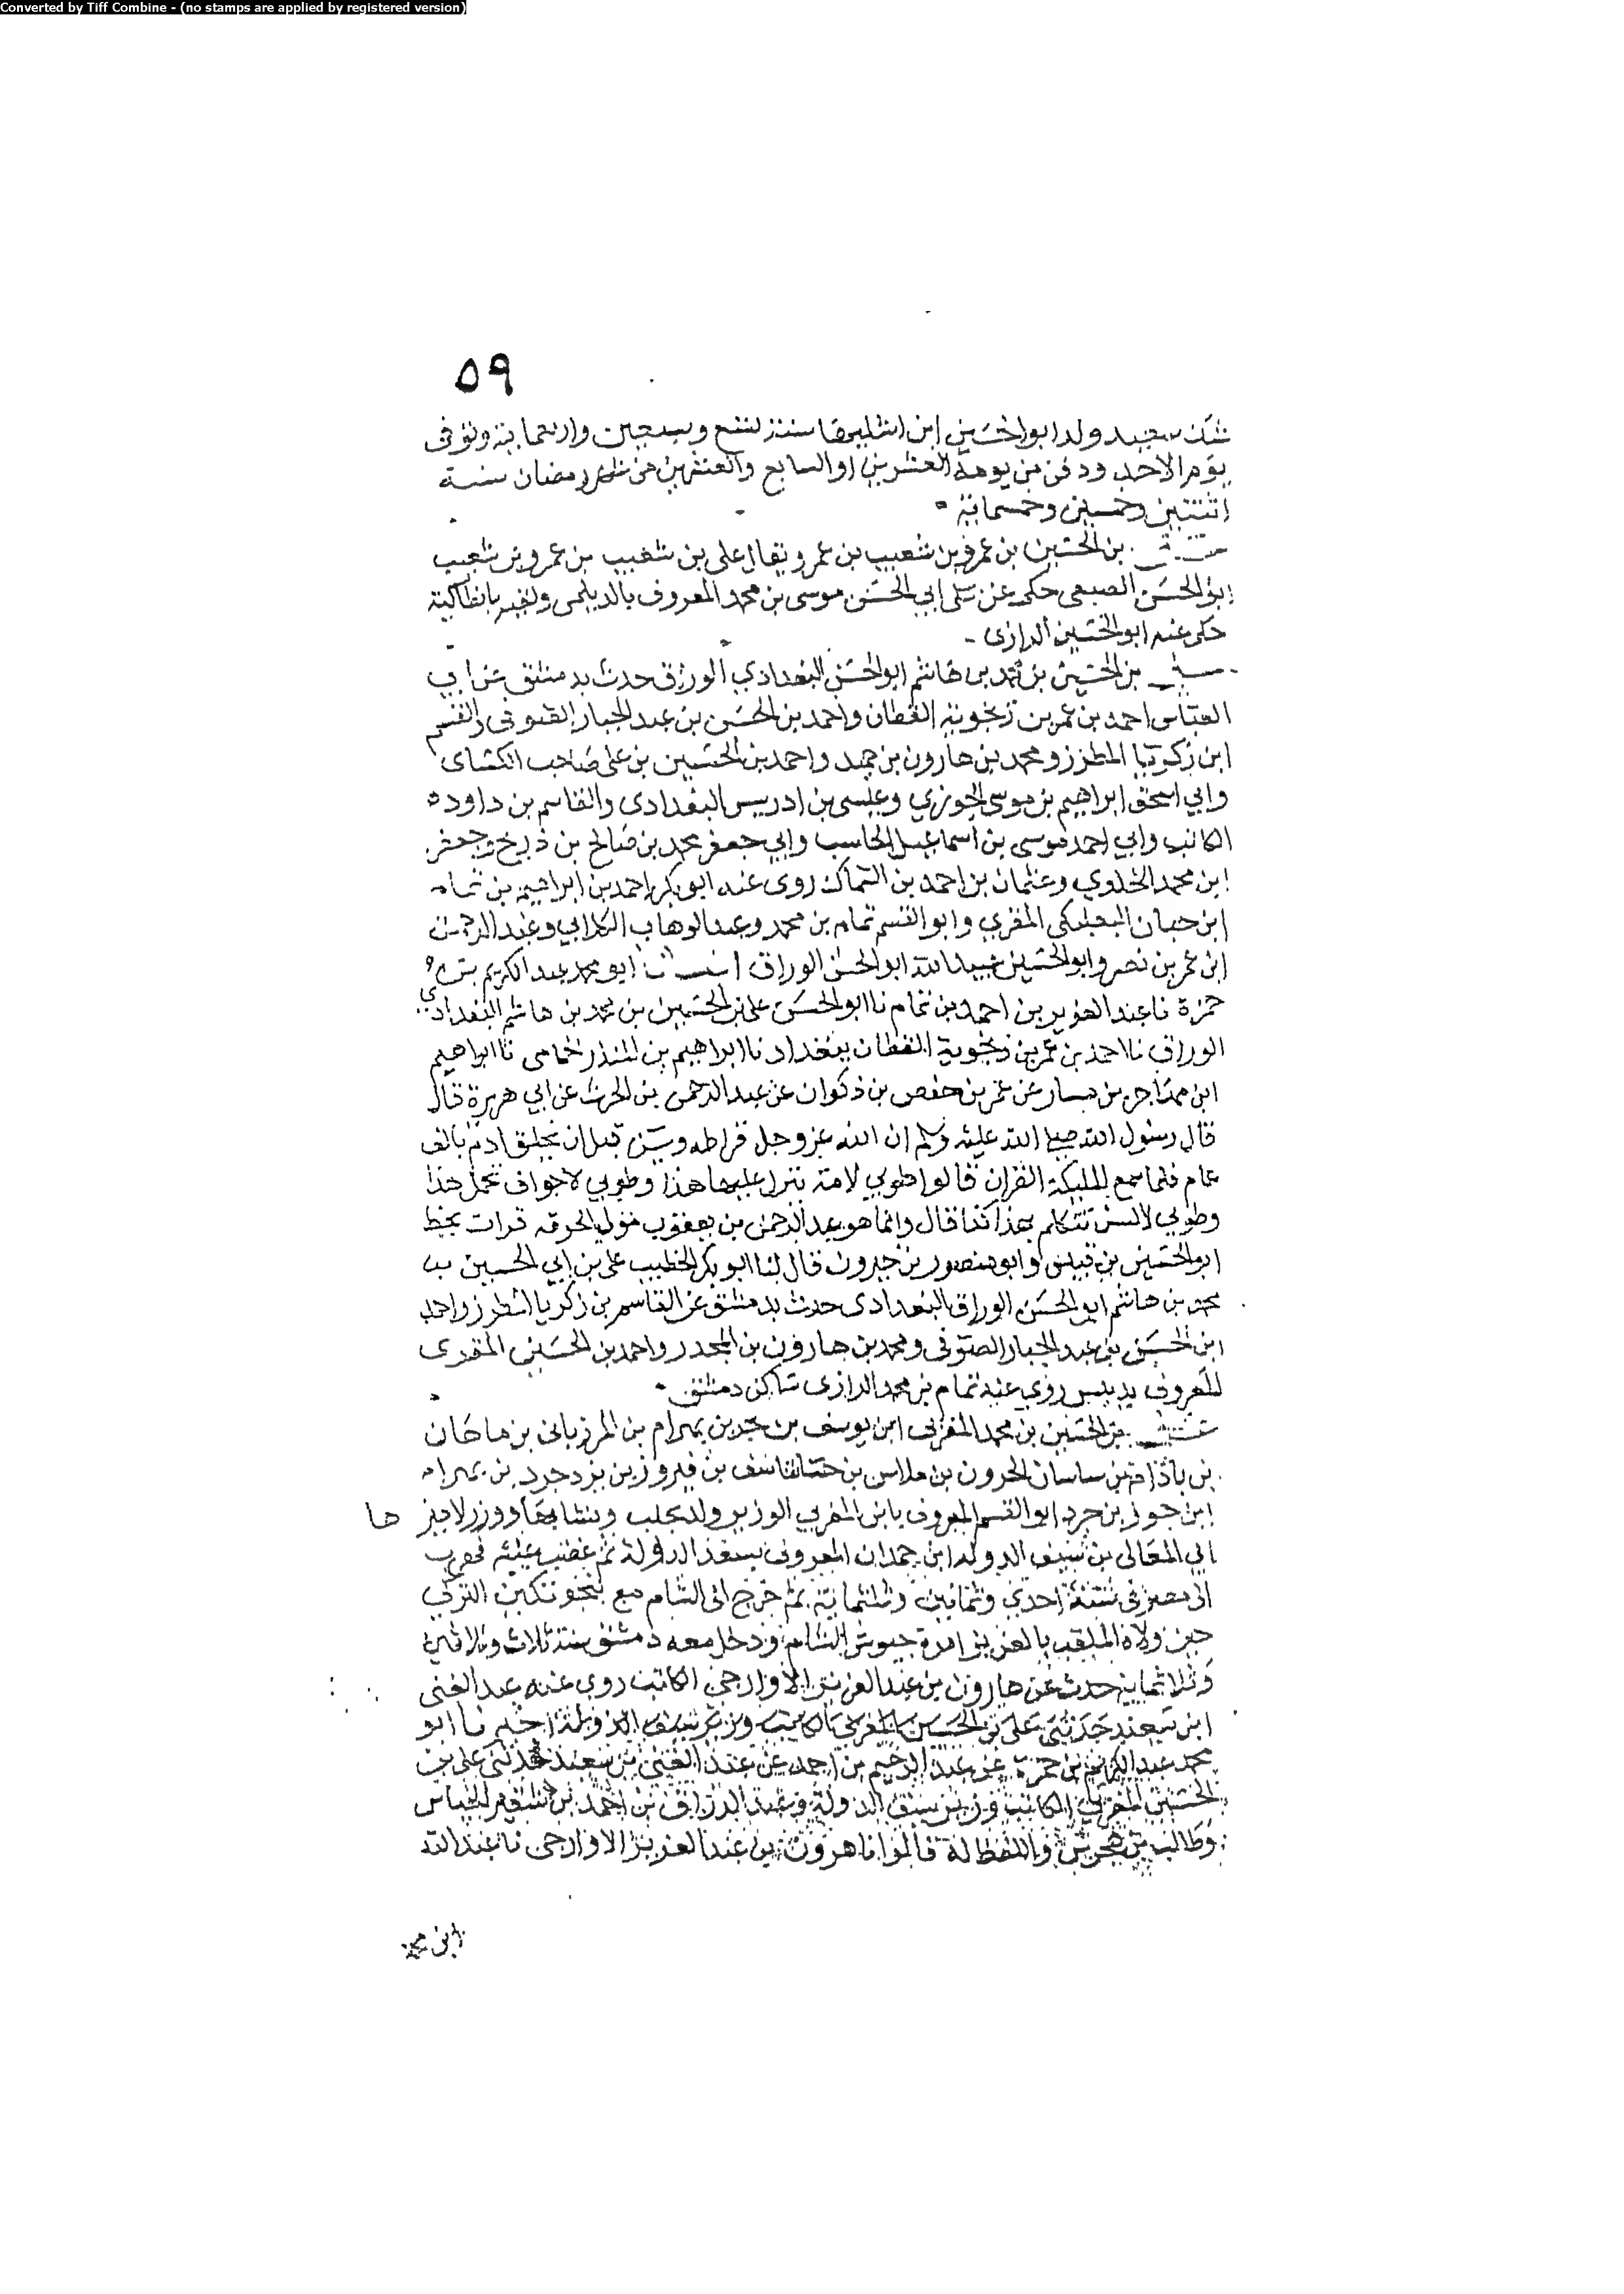 Converted by Tiff Combine - (no stamps are applied by registered version)
٥٩
سعيد ولد ابو الحسين ابن سنة تسع وسبعين واربعماية وتوفي
يوم الاحد ودفن من يومه العشرين او السابع والعشرين من رمضان سنة
اثنتين وخمسين وخمسماية
بن الحسين بن عمرو بن شعيب بن عمرو ويقال علي بن شعيب بن عمرو بن شعيب
ابو الحسن حكى عن ابي الحسن موسى بن محمد المعروف بالديلمي بانطاكية
حكى عنه ابو الحسين الرازي
بن الحسين بن محمد بن هاشم ابو الحسن البغدادي الوراق حدث بدمشق عن ابي
العباس احمد بن عمر بن زنجوية القطان واحمد بن الحسن بن عبد الجبار الصوفي والقسم
ابن زكريا المطرز ومحمد بن هارون بن واحمد بن الحسين بن علي صاحب الكشاي
وابي اسحق ابراهيم بن موسى الجوزي وعيسى بن ادريس البغدادي والقاسم بن داود
الكاتب وابي احمد موسى بن اسماعيل الحاسب وابي جعفر محمد بن صالح بن ذريح وجعفر
ابن محمد الخلدوي وعثمان بن احمد بن السماك روى عنه ابو بكر احمد بن ابراهيم بن تمام
ابن حبان البعلبكي المقري وابو القسم تمام بن محمد وعبد الوهاب الكلابي وعبد الرحمن
ابن عمر بن نصر وابو الحسين عبيد الله ابو الحسن الوراق ابو محمد عبد الكريم بن
حمزة نا عبد العزيز بن احمد بن تمام نا ابو الحسن علي بن الحسين بن محمد بن هاشم البغدادي
الوراق نا احمد بن عمر بن زنجوية القطان ببغداد نا ابراهيم بن المنذر الحامي نا ابراهيم
ابن مهاجر بن مسار عن عمر بن حفص بن ذكوان عن عبد الرحمن بن الحرث عن ابي هريرة قال
قال رسول الله صلى الله عليه وسلم ان الله عز وجل قرا طه ويس قبل ان يخلق ادم بالف
عام فلما سمع المليكة القران قالوا طوبى لامة ينزل عليها هذا وطوبى لاجواف تحمل هذا
وطوبى لالسن تتكلم بهذا كذا قال وانما هو عبد الرحمن بن يعقوب مولى الحرقه قرات بخط
ابو الحسين بن قبيس وابو منصور بن خيرون قال لنا ابو بكر الخطيب علي بن ابي الحسين بن
محمد بن هاشم ابو الحسن الوراق البغدادي حدث بدمشق عن القاسم بن زكريا المطرز واحمد
ابن الحسن بن عبد الجبار الصوفي ومحمد بن هارون بن المجدر واحمد بن الحسين المقري
المعروف بدبيس روى عنه تمام بن محمد الرازي ساكن دمشق
بن الحسين بن محمد المغربي ابن يوسف بن بحر بن بهرام بن المرزباني بن ماهان
بن باذام بن ساسان الحرون بن بلاس بن بن فيروز بن يزدجرد بن بهرام
ابن جور بن جرد ابو القسم المعروف بابن المغربي الوزير ولد بحلب ونشا بها ووزر لامير ها
ابي المعالي بن سيف الدولة ابن حمدان المعروف بسعد الدولة ثم غضب عليه فهرب
الى مصر في سنة احدى وثمانين وثلثماية ثم خرج الى الشام مع بنجوتكين التركي
حين ولاه الملقب بالعزيز امرة جيوش الشام ودخل معه دمشق سنة ثلاث وثلاثين
وثلاثماية حدث عن هارون بن عبد العزيز الاوارجي الكاتب روى عنه عبد الغني
ابن سعيد حدثني علي بن الحسين المغربي الكاتب وزير سيف الدولة اخبرنا ابو
محمد عبد الكريم بن حمزة عن عبد الرحيم بن احمد عن عبد الغني بن سعيد حدثني علي بن
الحسين المغربي الكاتب وزير سيف الدولة وعبد الرزاق بن احمد بن
وطالب بن هجرش واللفظ له قالوا نا هرون بن عبد العزيز الاوارجي نا عبد الله
ابن محمد